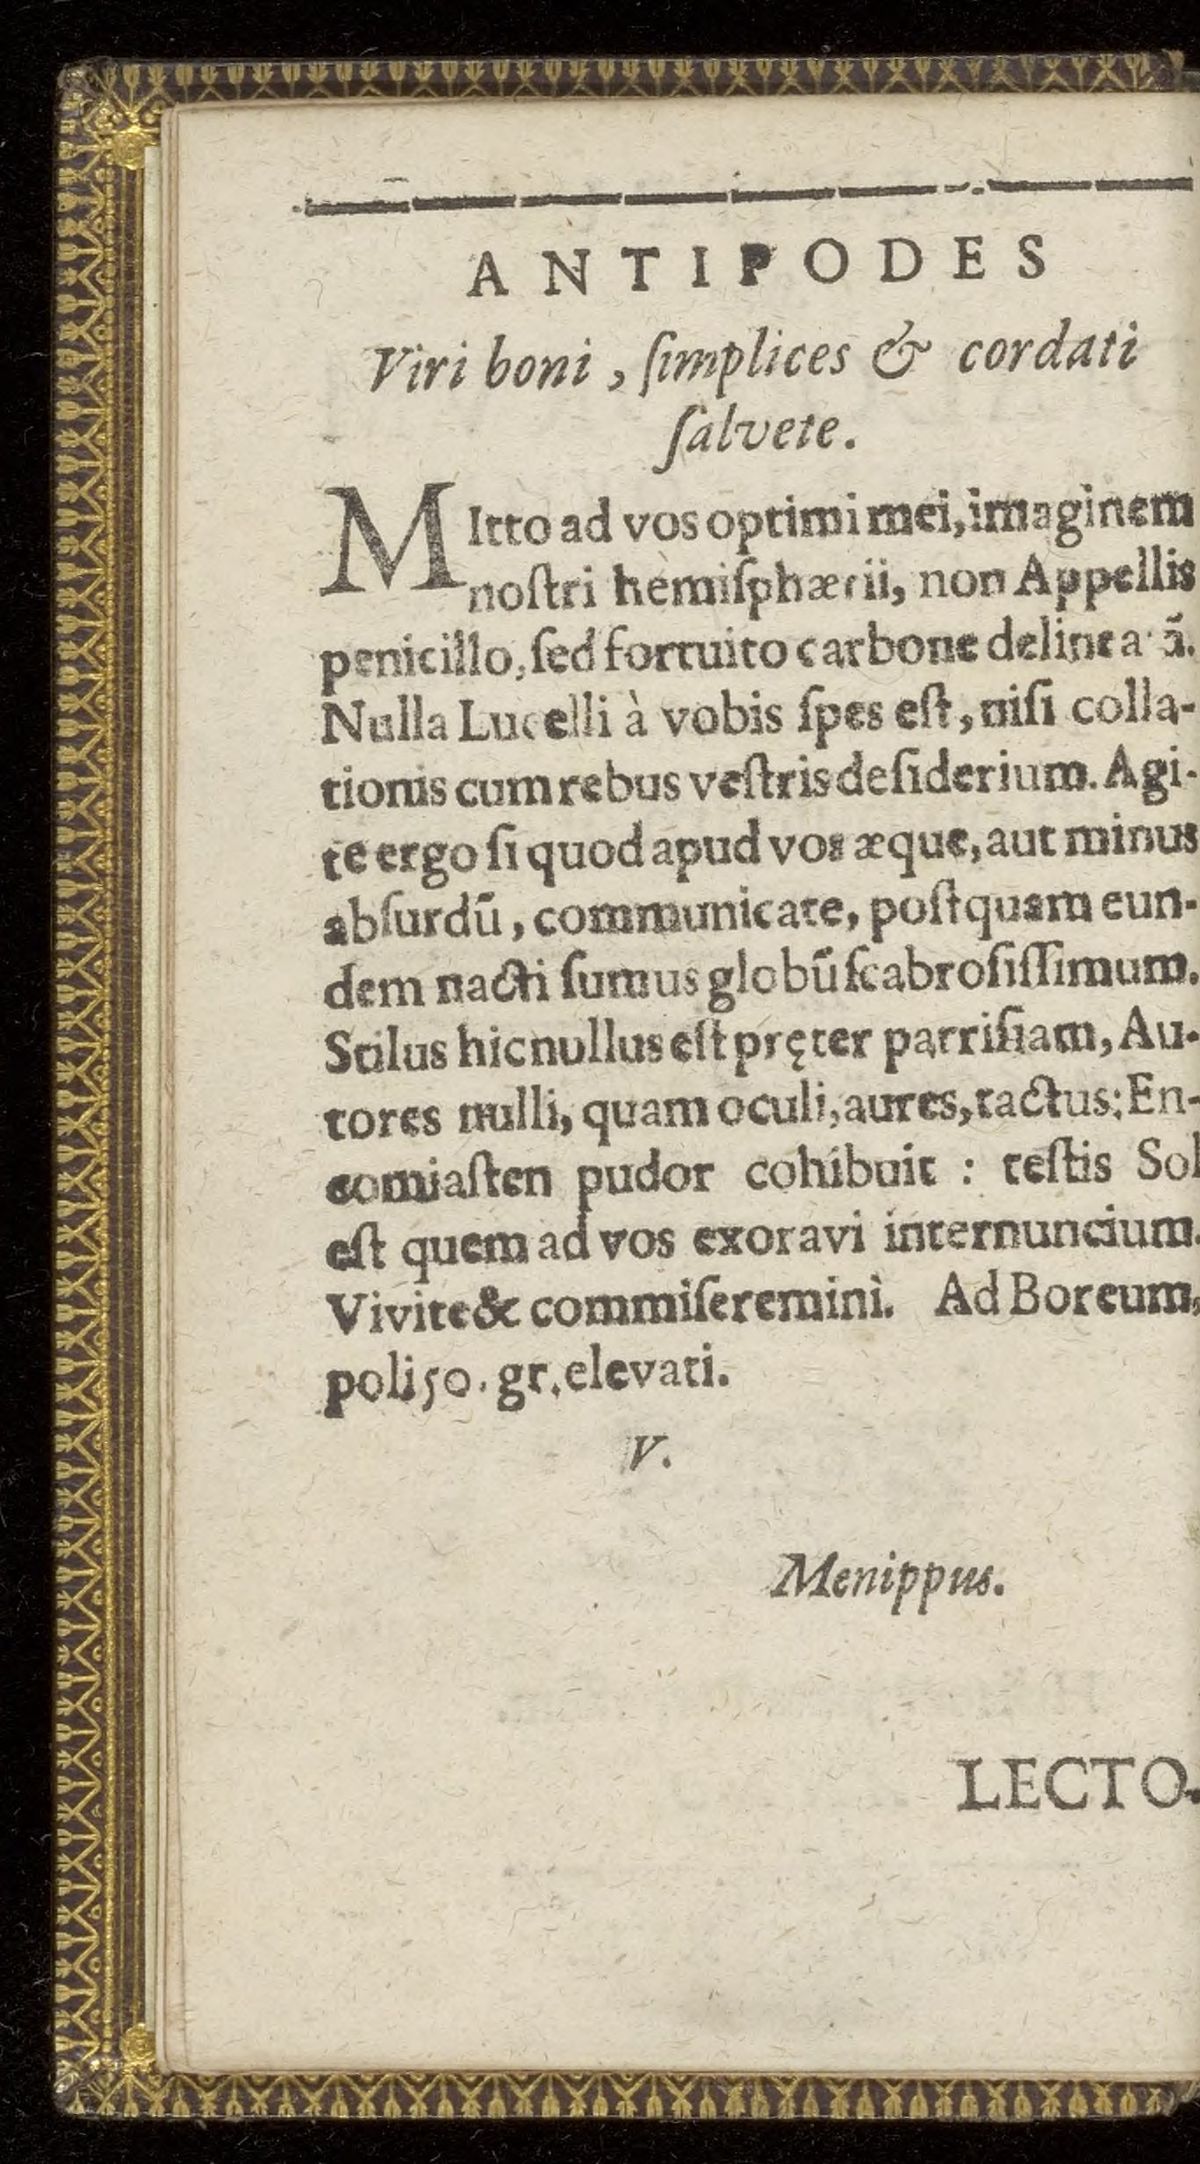 ANTIPODES
Viri boni, ſimplices & cordati
ſalvete.
MItto ad vos optimi mei, imaginem
noſtri hemiſphærii, non Appellis
penicillo, ſed fortuito carbone delineatā.
Nulla Lucelli à vobis ſpes eſt, niſi colla-
tionis cum rebus veſtris deſiderium. Agi-
te ergo ſi quod apud vos æque, aut minus
abſurdū, communicate, poſtquam eun-
dem nacti ſumus globū ſcabroſiſſimum.
Stilus hic nullus eſt pręter parriſiam, Au-
tores nulli, quam oculi, aures, tactus: En-
comiaſten pudor cohibuit : teſtis Sol
eſt quem ad vos exoravi internuncium.
Vivite & commiſereminì. Ad Boreum,
poli 50. gr. elevati.
V.
Menippus.
LECTO-